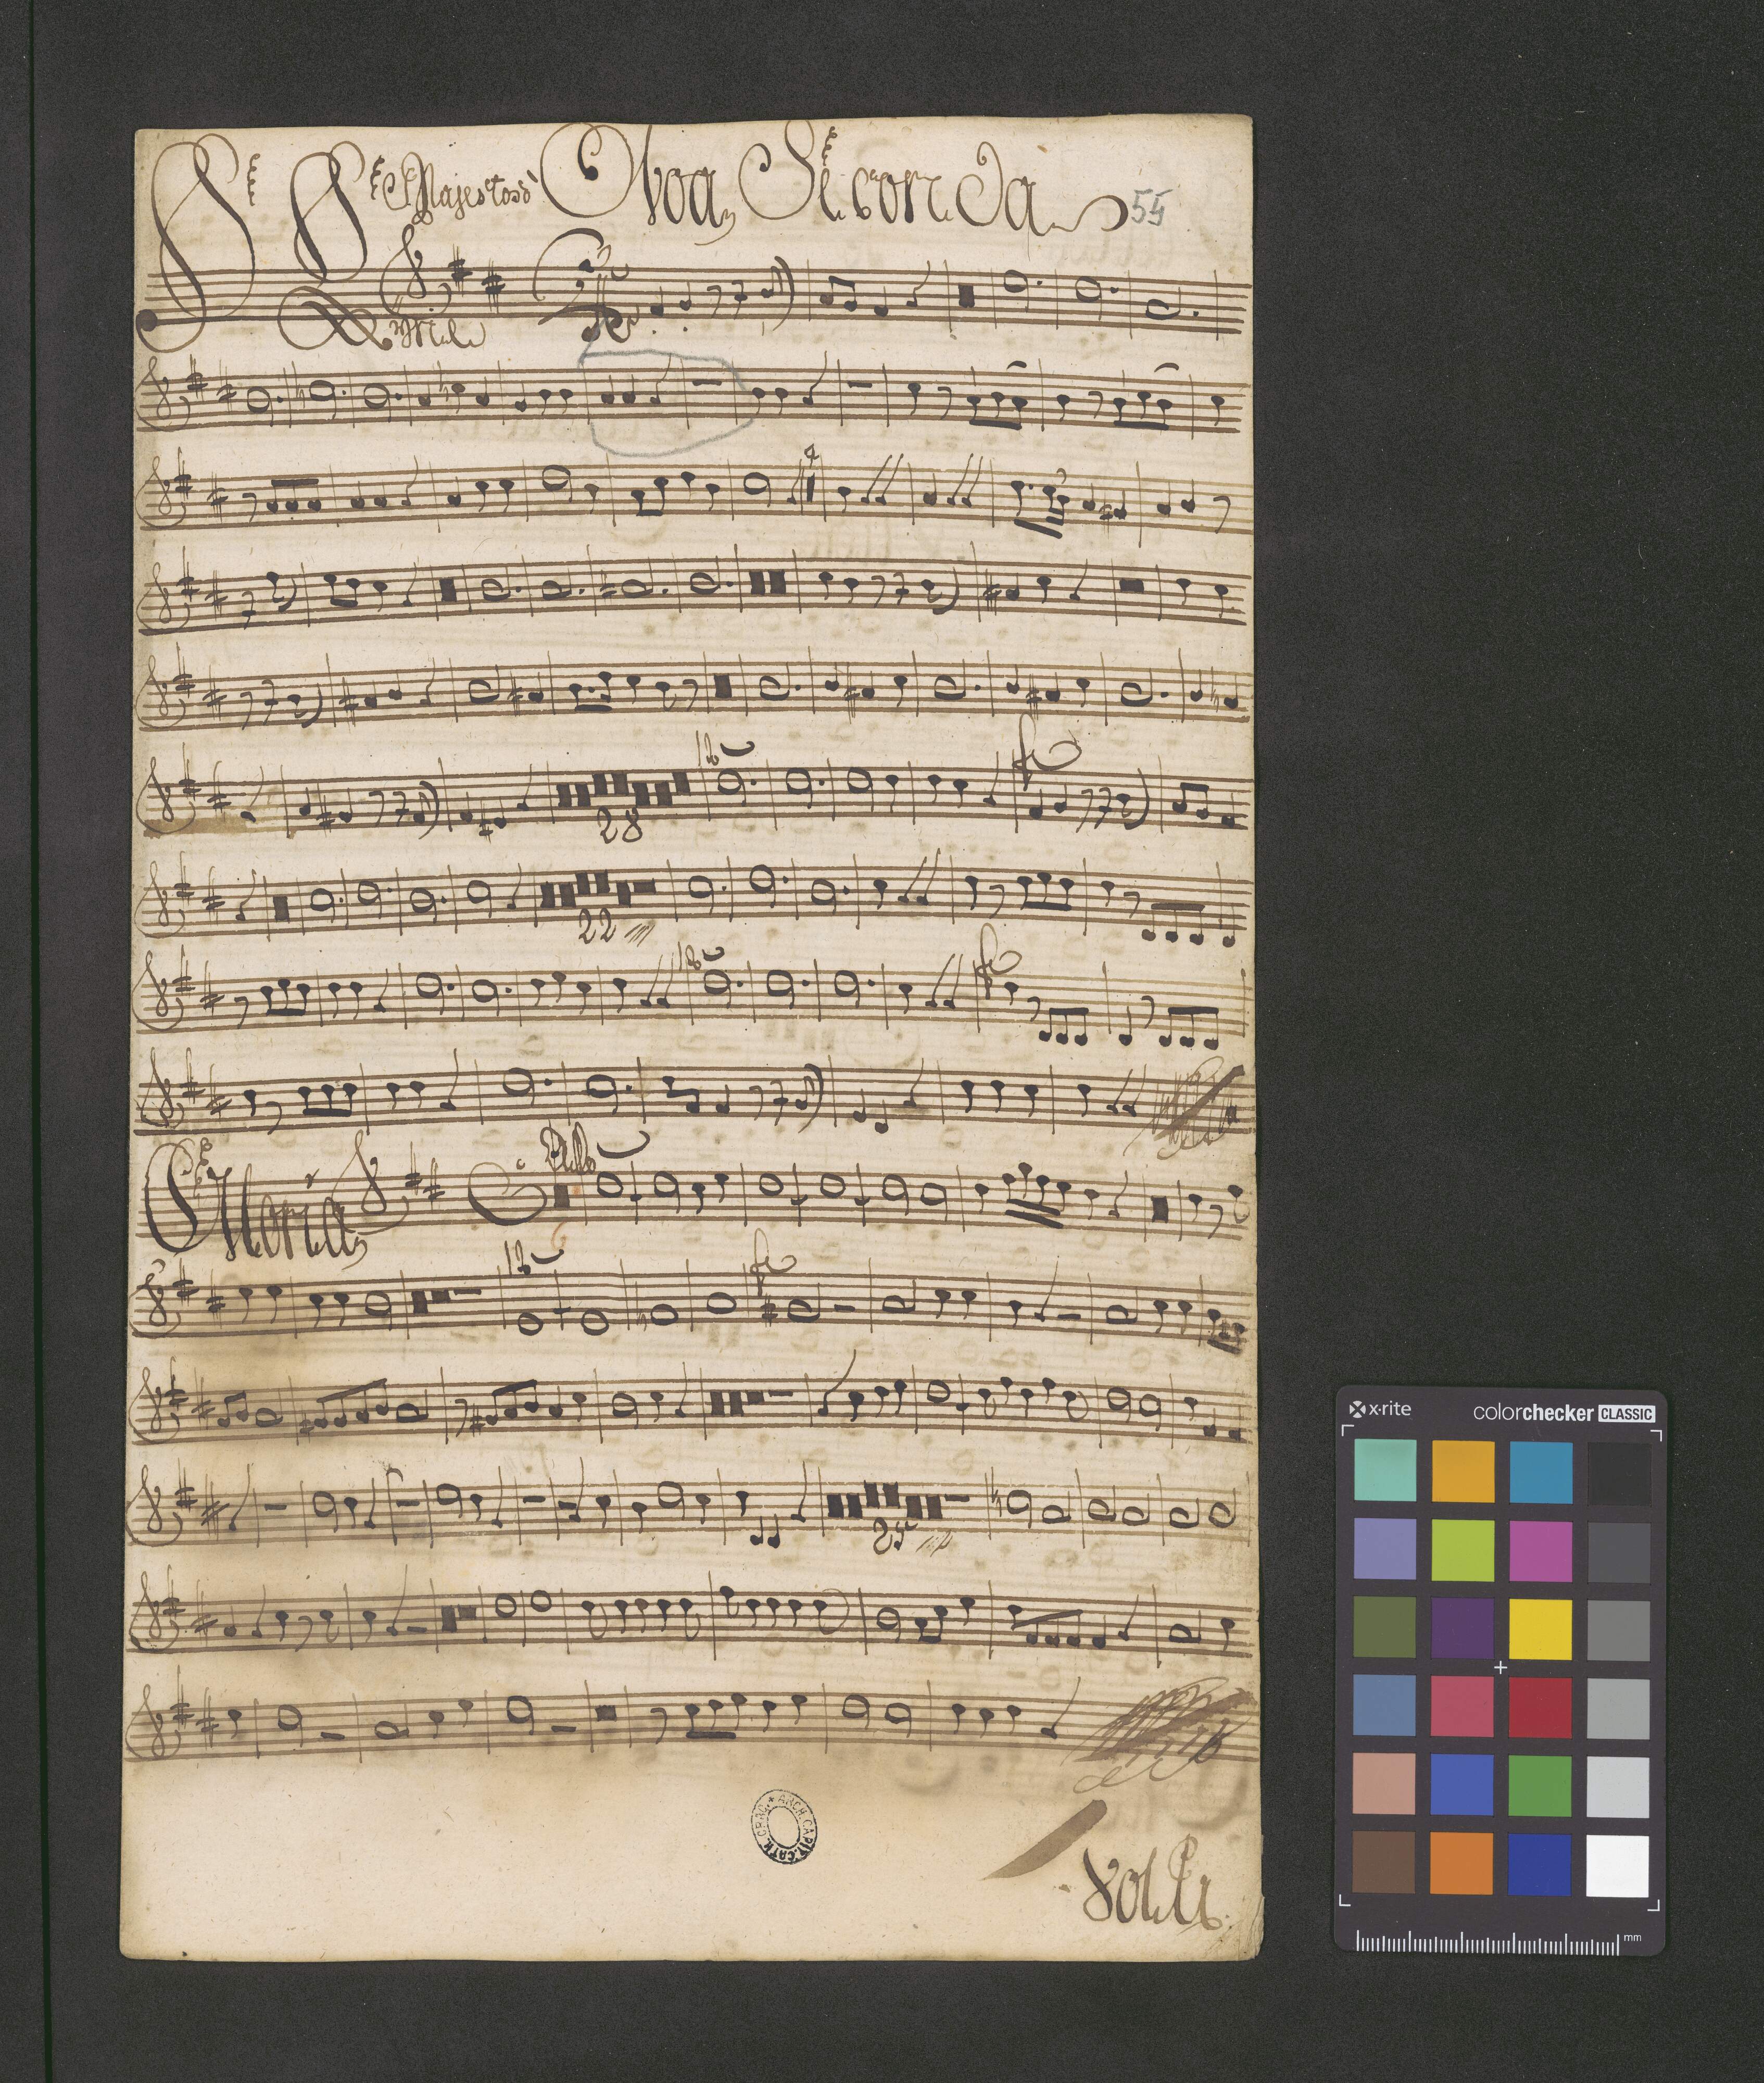 Majestoso Oboa Seconda 55
Kyrie
4
po
28
fe
22
po
fe
Gloria
po
fe
25
ARCH. CAPIT. CATH. CRAC.
Volti
x·rite colorchecker CLASSIC
mm